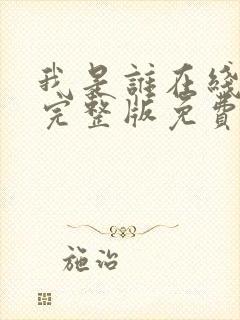 我是誰在綫
完整版免費
施诒